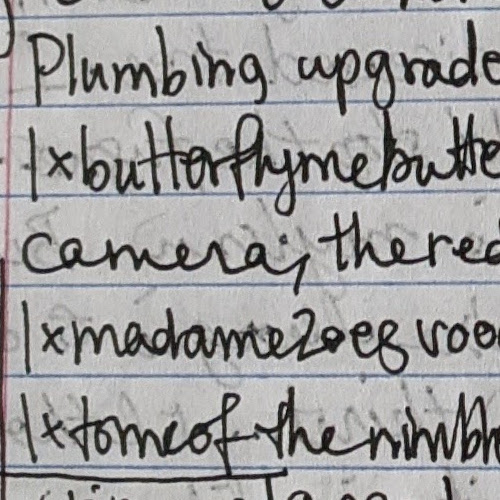 Plumbing upgrade
1xbutterflymebutte
camera; thered
1xmadamezoesvoo
1xtomeofthenimbl